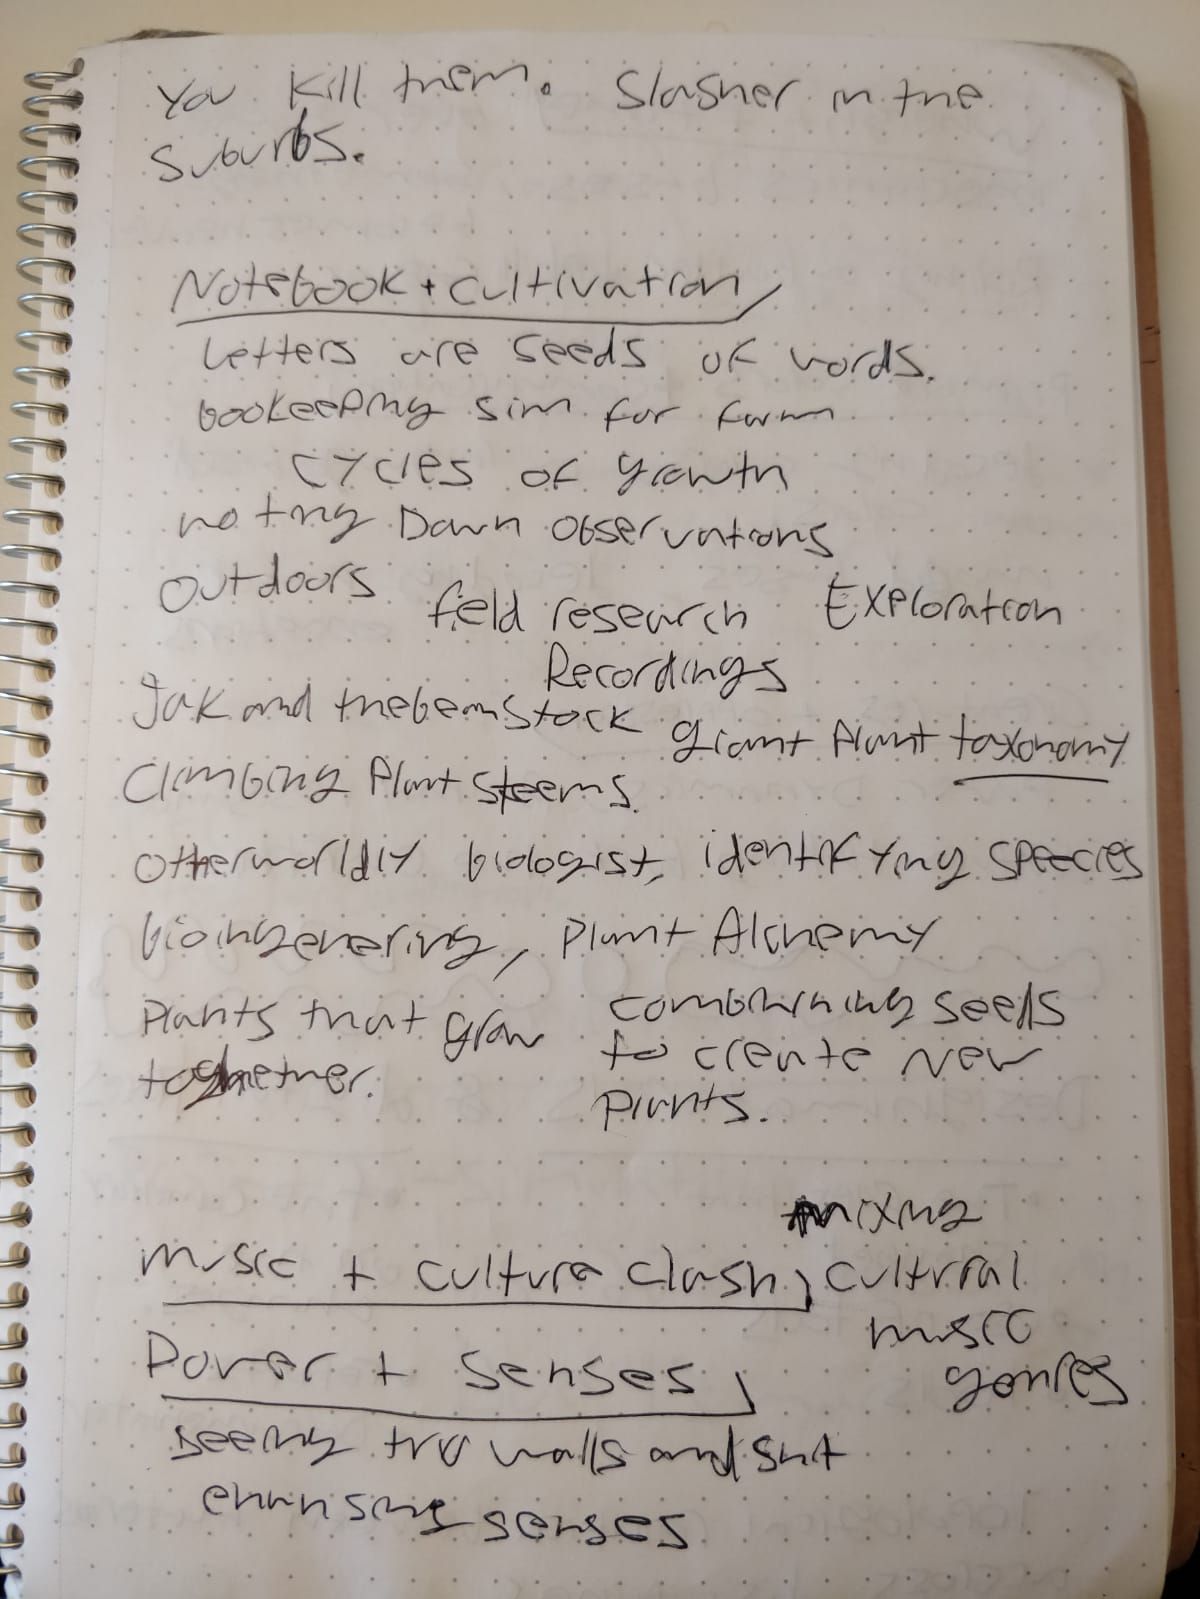 You Kill them. Slasher in the
Suburbs.
Notebook + cultivation
Letters are seeds of words.
bookeeping sim for farm
cycles of growth
noting Down observations
Outdoors field research Exploration
Recordings
Jak and the beanstock giant plant taxonomy
Climbing Plant steems.
Otherworldly biologist, identifying species
bioingenering, Plant Alchemy
Plants that grow
together.
combining seeds
to create new
plants.
mixing
music + culture clash, cultural
music
genres
Power + senses
seeing tru walls and shit
enhansing senses